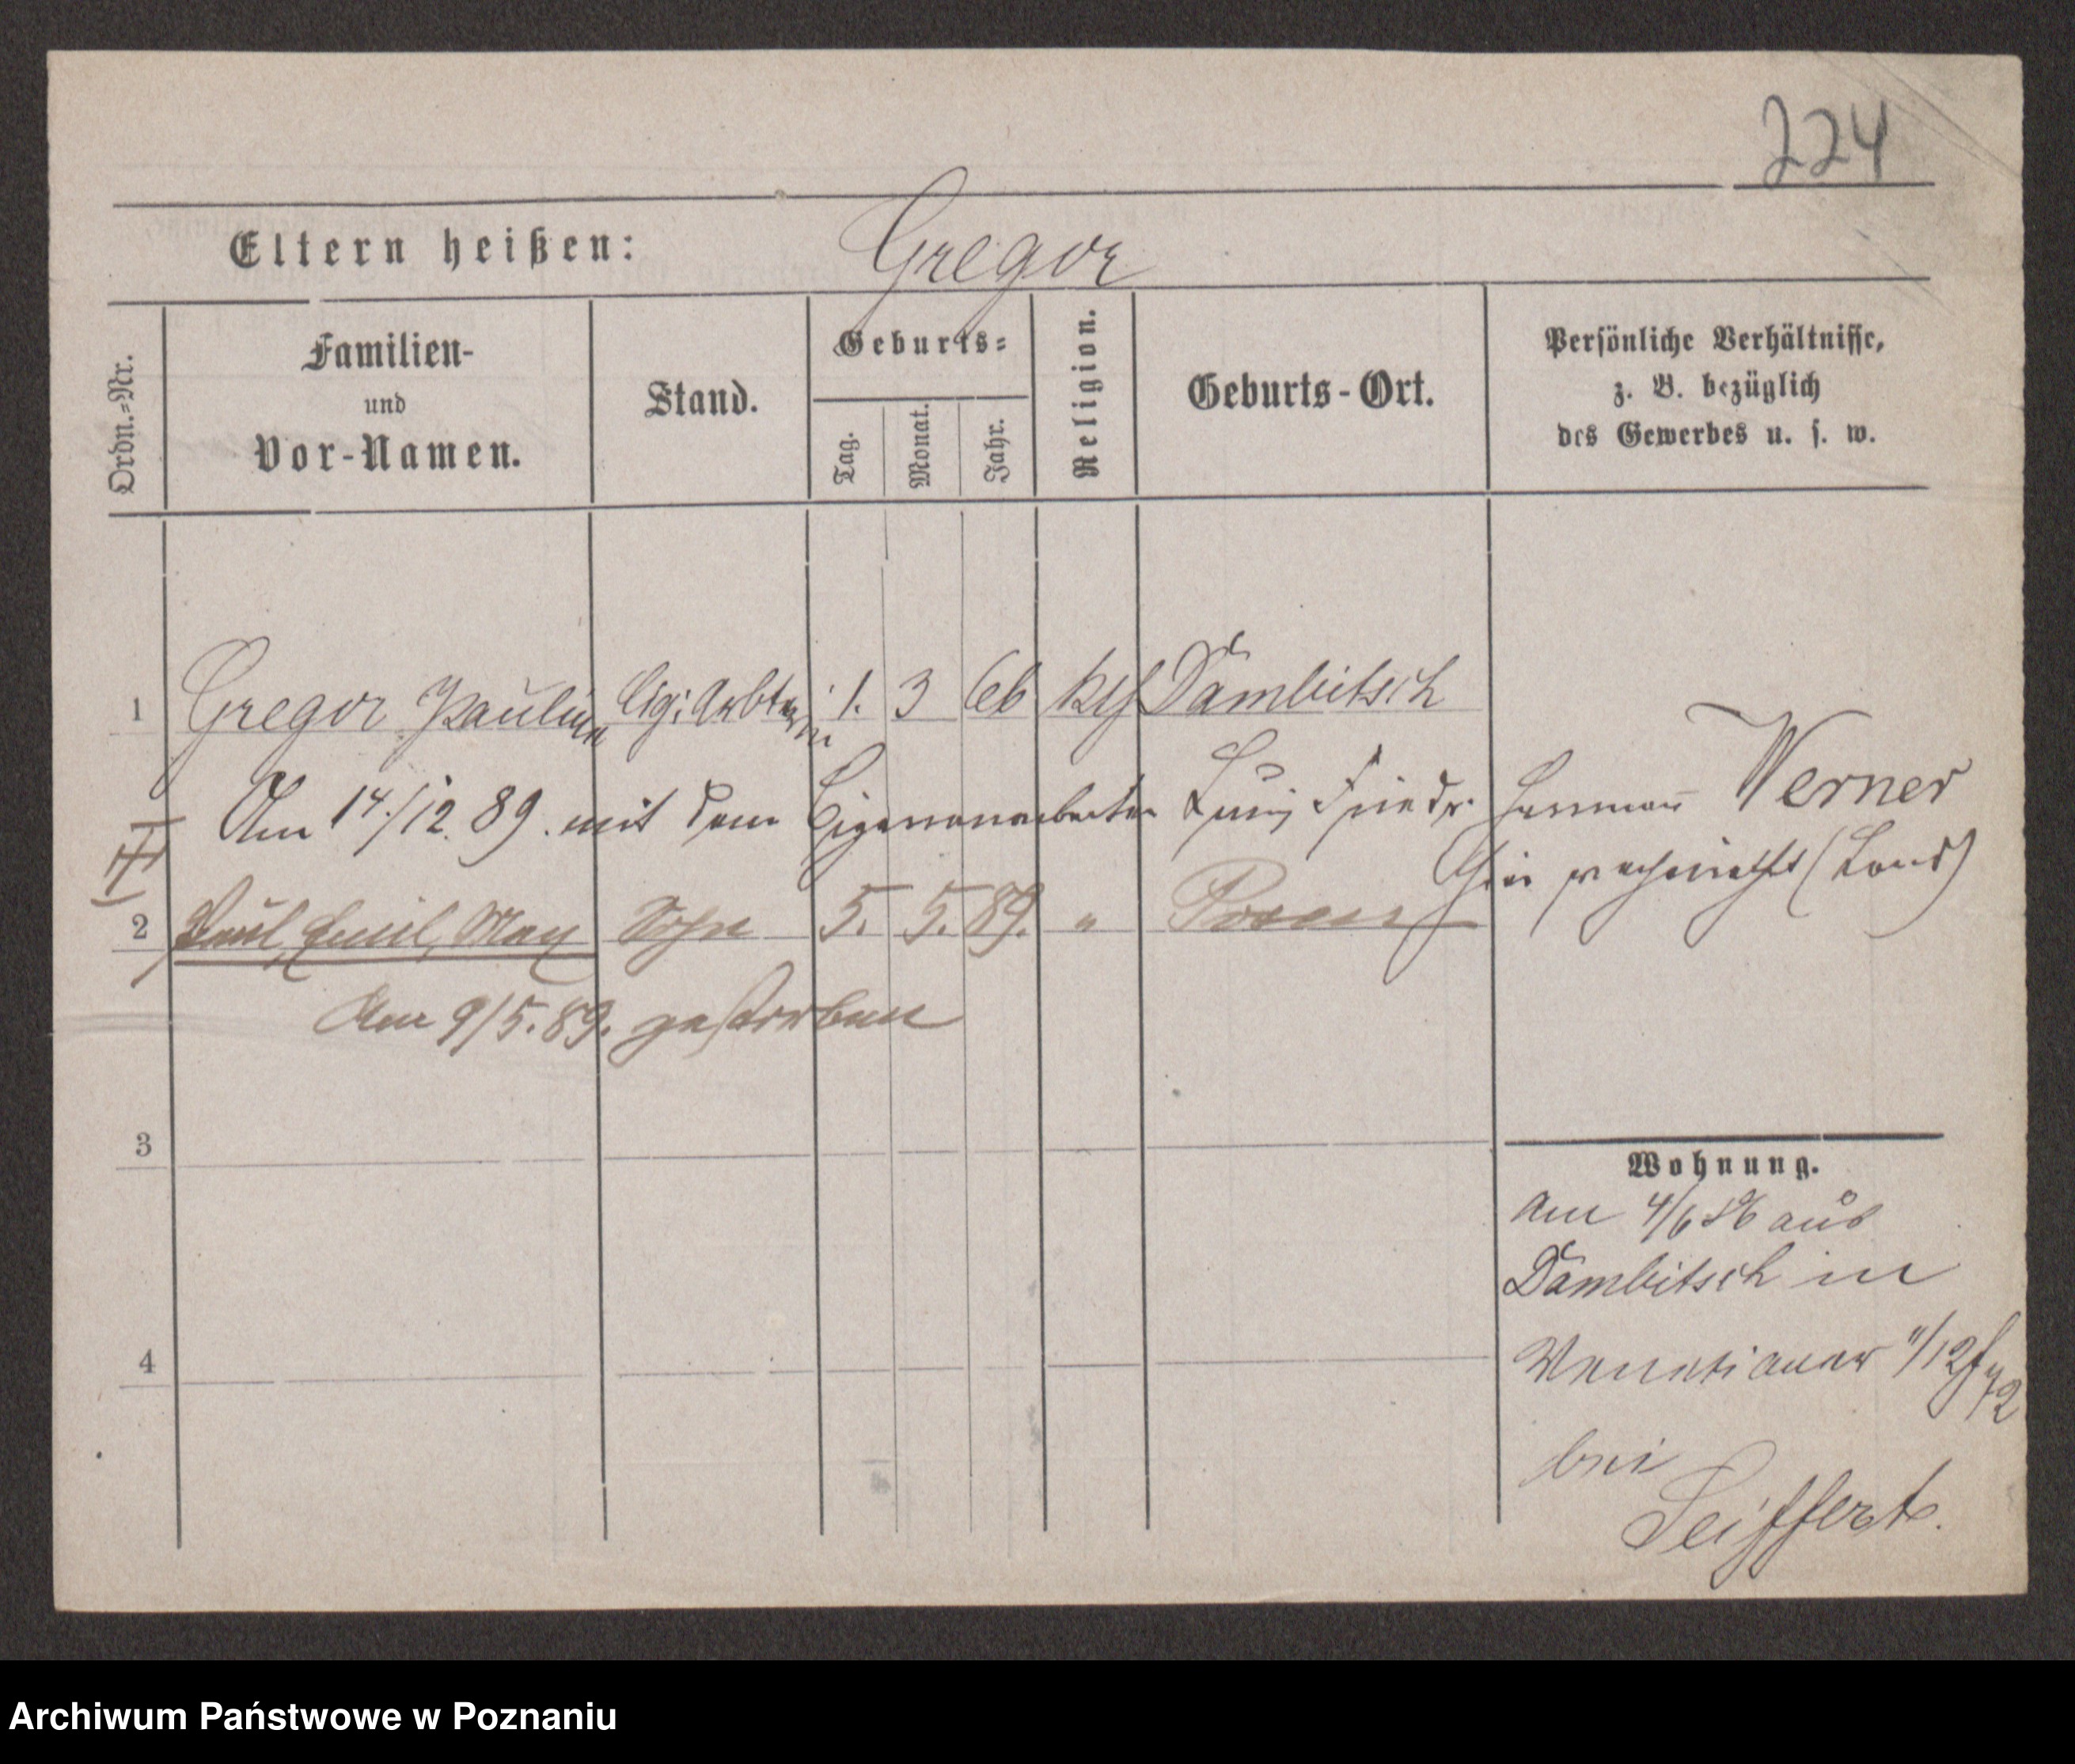 224
Eltern heißen: Gregor
Ordn.=Nr.
Familien-
und
Vor-Namen.
Stand.
Geburts=
Tag.
Monat.
Jahr.
Religion.
Geburts-Ort.
Persönliche Verhältnisse,
z. B. bezüglich
des Gewerbes u. s. w.
1 Gregor Pauline Cig: Arbterin 1. 3 66 Dambitsch
Am 14./12. 89. mit dem Cigarrenarbeiter Friedr. Hermann Werner
hier (Land)
2 Paul, Emil, Max Sohn 5. 5. 89. " Posen
Am 9/5. 89. gestorben
3
4
Wohnung.
Am 4/6 86 aus
Dambitsch in
Venetianer 11/12
bei
Seiffert.
Archiwum Państwowe w Poznaniu